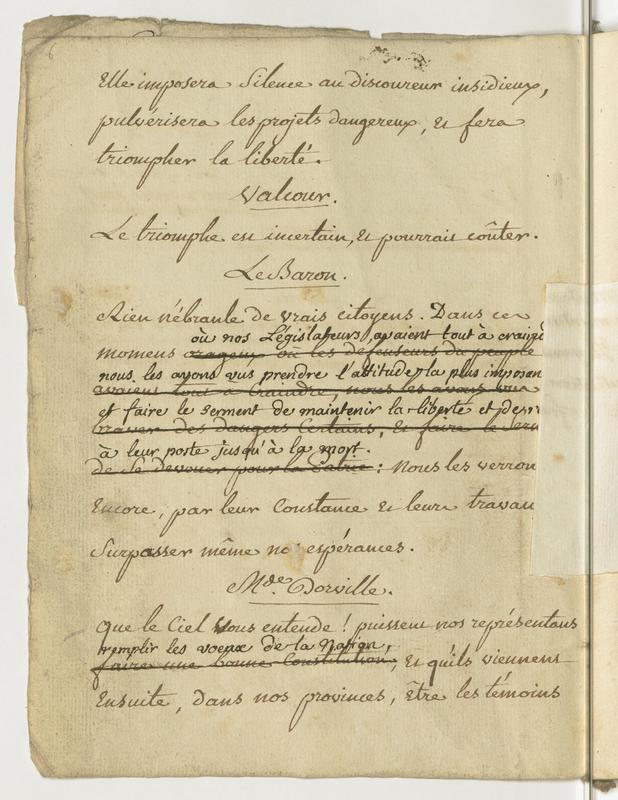 6
Elle imposera Silence au discoureur insidieux,
pulvérisera les projets dangereux, et fera
triompher la liberté.
Valcour.
Le triomphe est incertain, et pourrait coûter.
Le Baron.
Rien n'ébranle de vrais citoyens. Dans ces
où nos Législateurs avaient tout à craindre
momens orageux où les défenseurs du peuple
nous les avons vus prendre l'attitude la plus imposan
avaient tout à Craindre, nous les avons vus
et faire le serment de maintenir la liberté et de
braver des dangers Certains, et faire le Serm
à leur poste jusqu'à la mort.
de se dévouer pour la Patrie : Nous les verron
Encore, par leur Constance et leurs travau
Surpasser même nos espérances.
Mde. Dorville.
Que le Ciel vous entende ! puissent nos représentans
remplir les voeux de la Nation,
faire une bonne Constitution, et qu'ils viennent
Ensuite, dans nos provinces, être les témoins